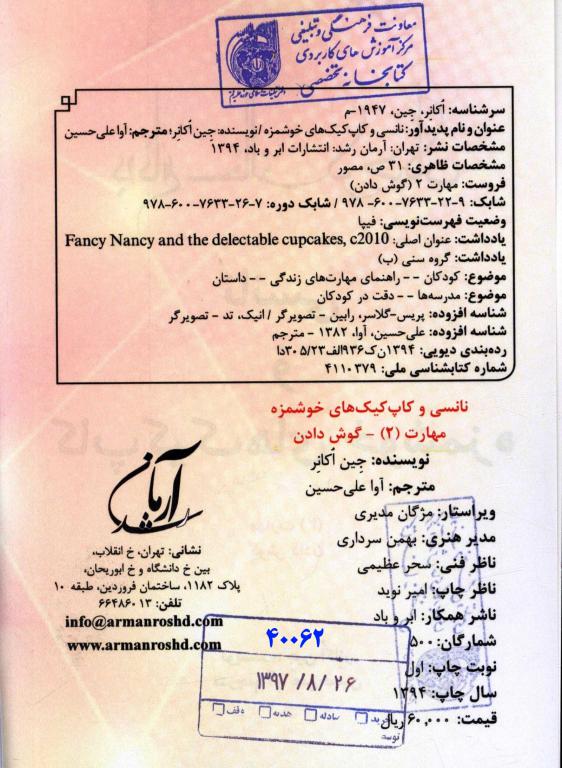 معاونت فرهنگی و تبلیغی
مرکز آموزش های کاربردی
کتابخانه تخصصی
سرشناسه: اُکانِر، جین، ۱۹۴۷-م
عنوان و نام پدیدآور: نانسی و کاپ‌کیک‌های خوشمزه / نویسنده: جین اُکانِر؛ مترجم: آوا علی‌حسین
مشخصات نشر: تهران: آرمان رشد: انتشارات ابر و باد، ۱۳۹۴
مشخصات ظاهری: ۳۱ ص، مصور
فروست: مهارت ۲ (گوش دادن)
شابک: ۹-۲۲-۷۶۳۳-۶۰۰-۹۷۸ / شابک دوره: ۷-۲۶-۷۶۳۳-۶۰۰-۹۷۸
وضعیت فهرست‌نویسی: فیپا
یادداشت: عنوان اصلی: Fancy Nancy and the delectable cupcakes, c2010
یادداشت: گروه سنی (ب)
موضوع: کودکان -- راهنمای مهارت‌های زندگی -- داستان
موضوع: مدرسه‌ها -- دقت در کودکان
شناسه افزوده: پریس-گلاسر، رابین - تصویرگر / انیک، تد - تصویرگر
شناسه افزوده: علی‌حسین، آوا، ۱۳۸۲ - مترجم
رده‌بندی دیویی: ۱۳۹۴ن‌ک۹۳۶الف۳۰۵/۲۳دا
شماره کتابشناسی ملی: ۴۱۱۰۳۷۹
نانسی و کاپ‌کیک‌های خوشمزه
مهارت (۲) - گوش دادن
نویسنده: جین اُکانِر
مترجم: آوا علی‌حسین
ویراستار: مژگان مدیری
مدیر هنری: بهمن سرداری
ناظر فنی: سحر عظیمی
ناظر چاپ: امیر نوید
ناشر همکار: ابر و باد
شمارگان: ۵۰۰
نوبت چاپ: اول
سال چاپ: ۱۳۹۴
قیمت: ۶۰,۰۰۰ ریال
آرمان رشد
نشانی: تهران، خ انقلاب،
بین خ دانشگاه و خ ابوریحان،
پلاک ۱۱۸۲، ساختمان فروردین، طبقه ۱۰
تلفن: ۶۶۴۸۶۰۱۳
info@armanroshd.com
www.armanroshd.com
۴۰۰۶۲
۱۳۹۷/۸/۲۶
خرید مبادله هدیه وقف